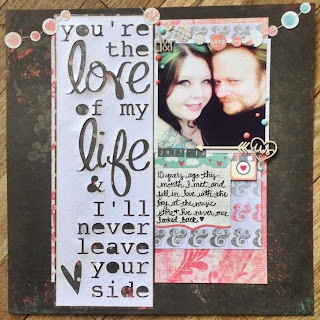 you're
the
love
of my
life
&
I'll
never
leave
your
side
15 years ago this
month I met and
fell in love with the
boy at the music
store & I've never once
looked back ♥